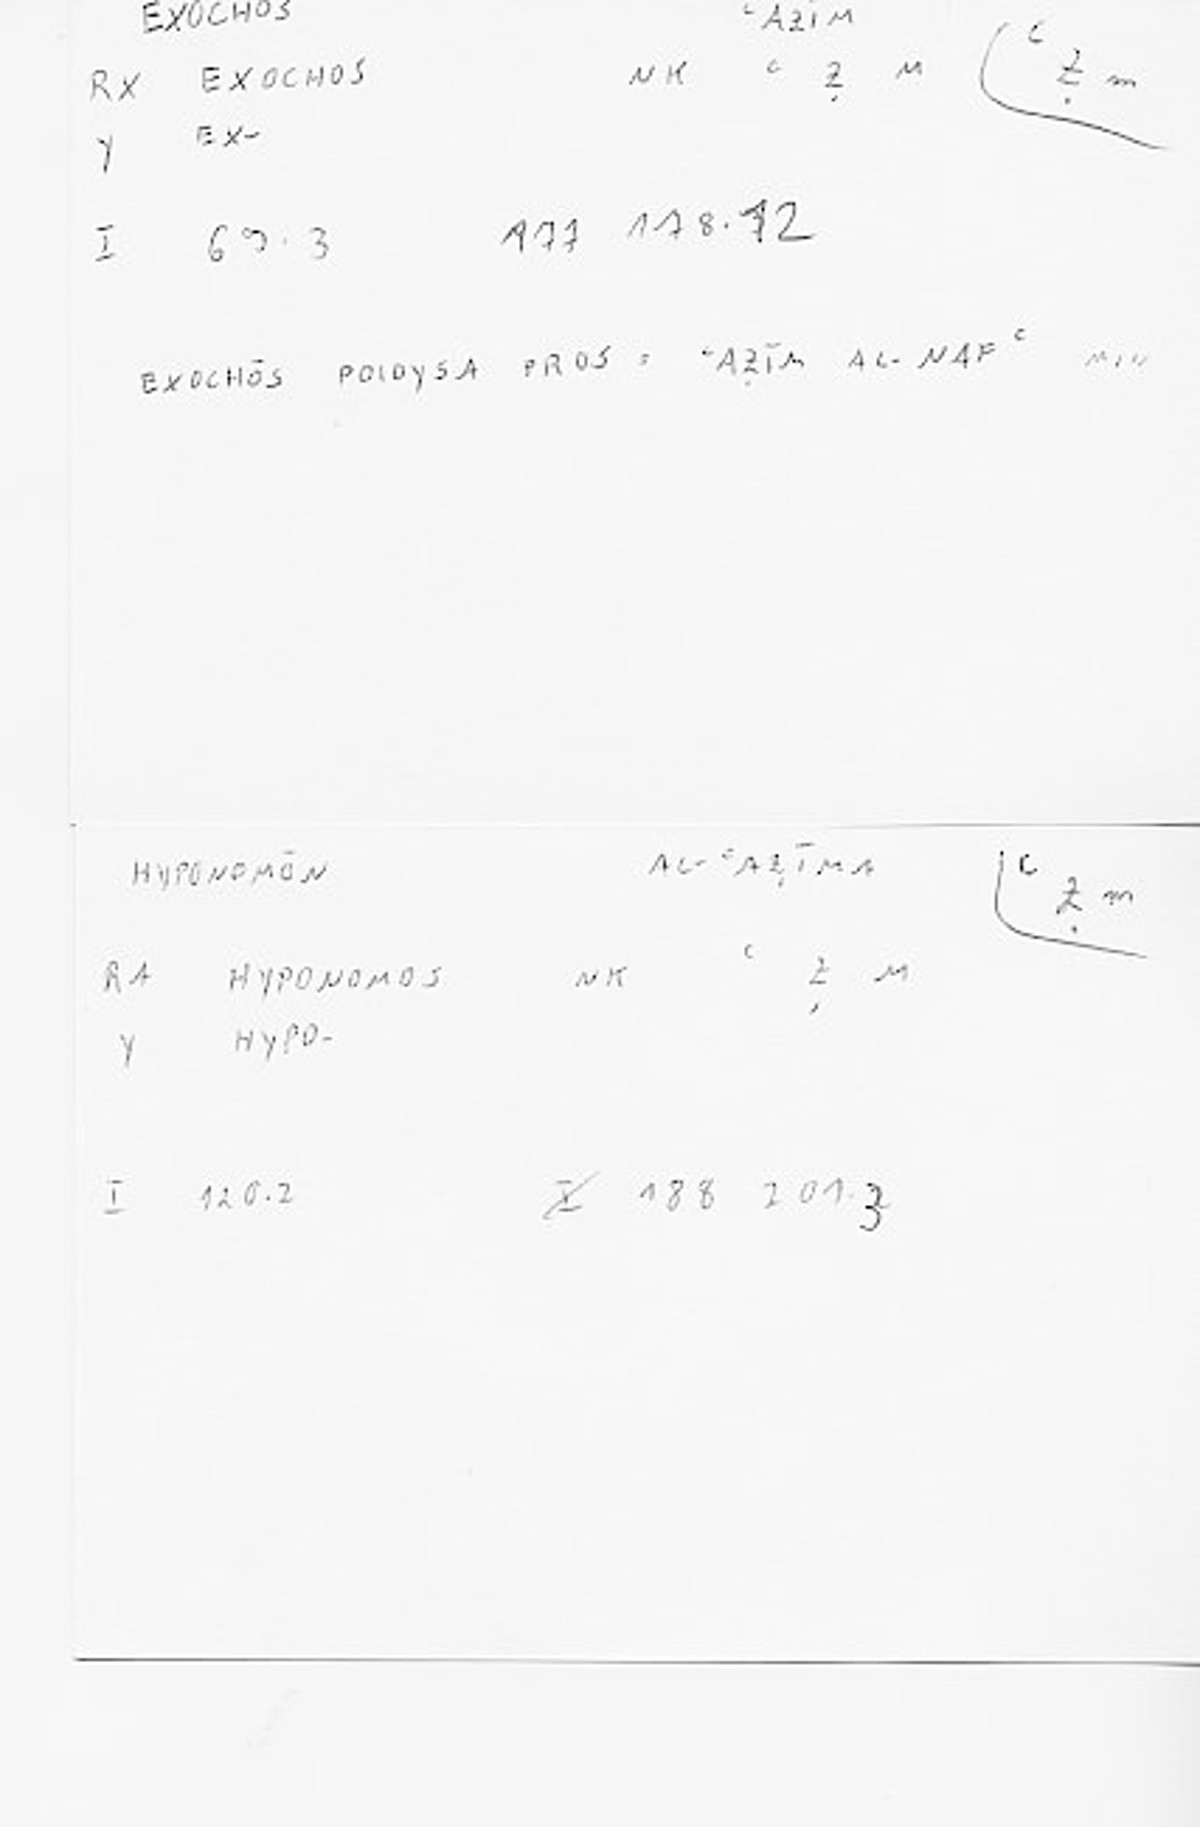 EXOCHOS ʿAẒĪM
RX EXOCHOS NK ʿ Ẓ M ʿ ẓ m
Y EX-
I 69.3 177 178.12
EXOCHŌS POIOYSA PROS : ʿAẒĪM AL-NAFʿ MIN
HYPONOMŌN AL-ʿAẒĪMA ʿ ẓ m
RA HYPONOMOS NK ʿ Ẓ M
Y HYPO-
I 120.2 188 201.3